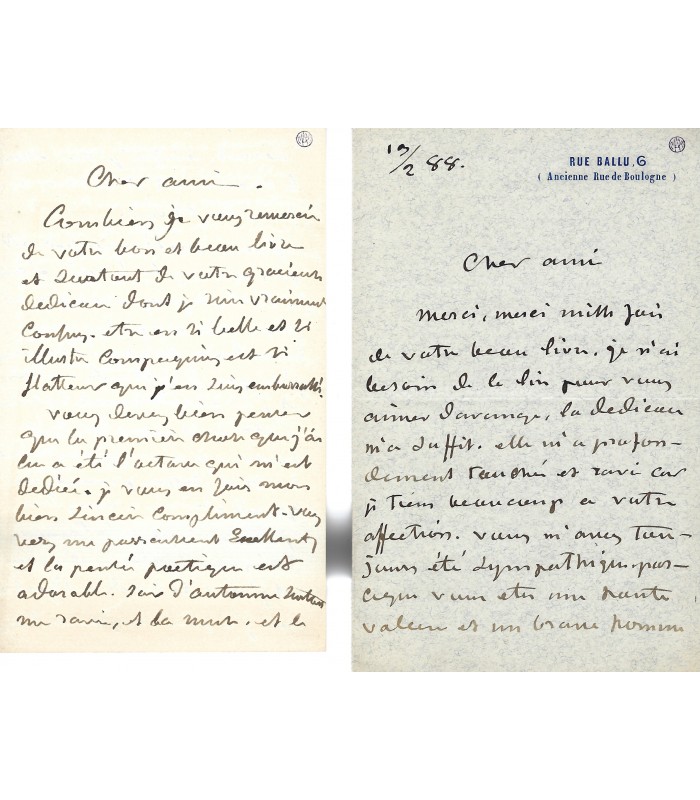 Cher ami.
Combien je vous remercie
de votre bon et beau livre
et surtout de votre gracieuse
dedicace dont je suis vraiment
confus. etre en si belle et si
illustre compagnie est si
flatteur que j'en suis embarrassé.
vous devez bien penser
que la première chose que j'ai
lu a été l'octave qui m'est
dediée. je vous en fais mon
bien sincere compliment. vos
vers me paraissent excellents
et la pensée poetique est
adorable. Soir d'automne surtout
me ravie, et la mer. et le
19/2 88.
RUE BALLU, 6
( Ancienne Rue de Boulogne )
Cher ami
Merci, merci mille fois
de votre beau livre. je n'ai
besoin de le lire pour vous
aimer davantage, la dedicace
m'a suffit. elle m'a profon-
dement touché et ravi car
je tiens beaucoup a votre
affection. vous m'avez tou-
jours été sympathique. par-
ceque vous etes une haute
valeur et un brave homme